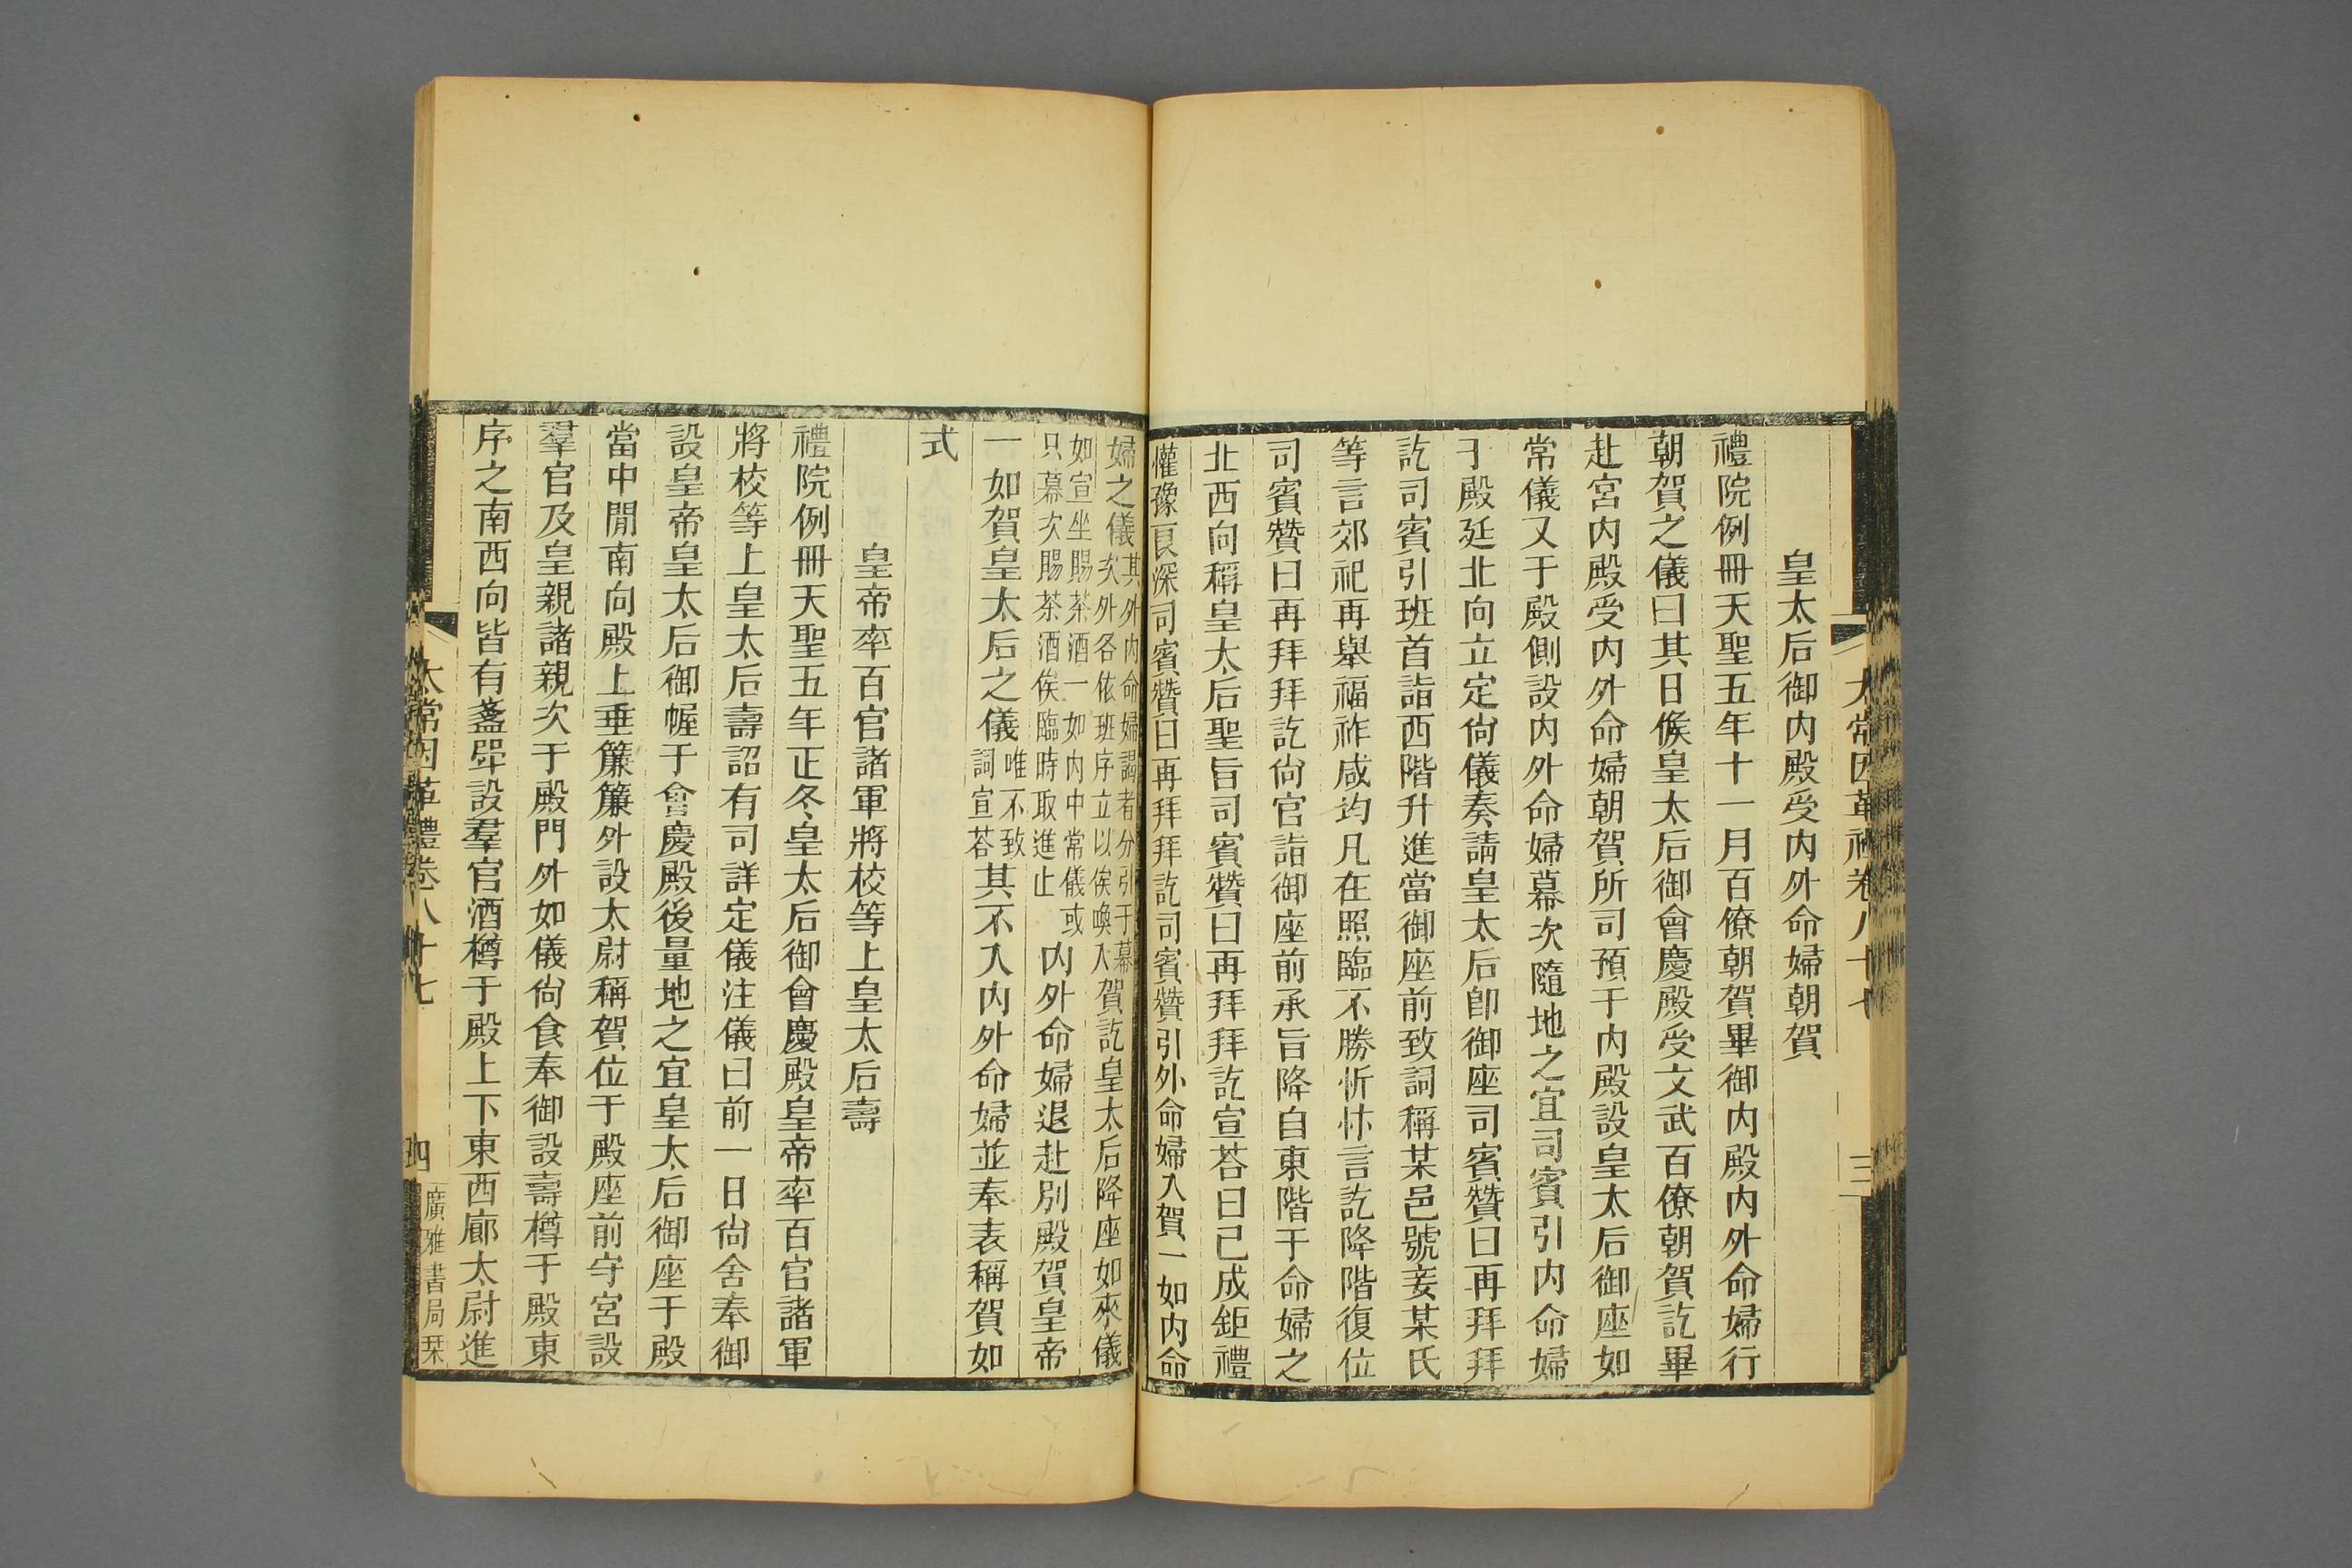 太常因革禮卷八十七
三
皇太后御內殿受內外命婦朝賀
禮院例冊天聖五年十一月百僚朝賀畢御內殿內外命婦行
朝賀之儀曰其日候皇太后御會慶殿受文武百僚朝賀訖畢
赴宮內殿受內外命婦朝賀所司預于內殿設皇太后御座如
常儀又于殿側設內外命婦幕次隨地之宜司賓引內命婦
于殿廷北向立定尙儀奏請皇太后卽御座司賓贊曰再拜拜
訖司賓引班首詣西階升進當御座前致詞稱某邑號妾某氏
等言郊祀再舉福祚咸均凡在照臨不勝忻忭言訖降階復位
司賓贊曰再拜拜訖尙官詣御座前承旨降自東階于命婦之
北西向稱皇太后聖旨司賓贊曰再拜拜訖宣荅曰已成鉅禮
懽豫良深司賓贊曰再拜拜訖司賓贊引外命婦入賀一如內命
婦之儀其外內命婦謁者分引于幕次外各依班序立以俟喚入賀訖皇太后降座如來儀
如宣坐賜茶酒一如內中常儀或只幕次賜茶酒俟臨時取進止內外命婦退赴別殿賀皇帝
一如賀皇太后之儀唯不致詞宣荅其不入內外命婦並奉表稱賀如
式
皇帝率百官諸軍將校等上皇太后壽
禮院例冊天聖五年正冬皇太后御會慶殿皇帝率百官諸軍
將校等上皇太后壽詔有司詳定儀注儀曰前一日尙舍奉御
設皇帝皇太后御幄于會慶殿後量地之宜皇太后御座于殿
當中閒南向殿上垂簾簾外設太尉稱賀位于殿座前守宮設
羣官及皇親諸親次于殿門外如儀尙食奉御設壽樽于殿東
序之南西向皆有盞斝設羣官酒樽于殿上下東西廊太尉進
太常因革禮卷八十七
四
廣雅書局栞